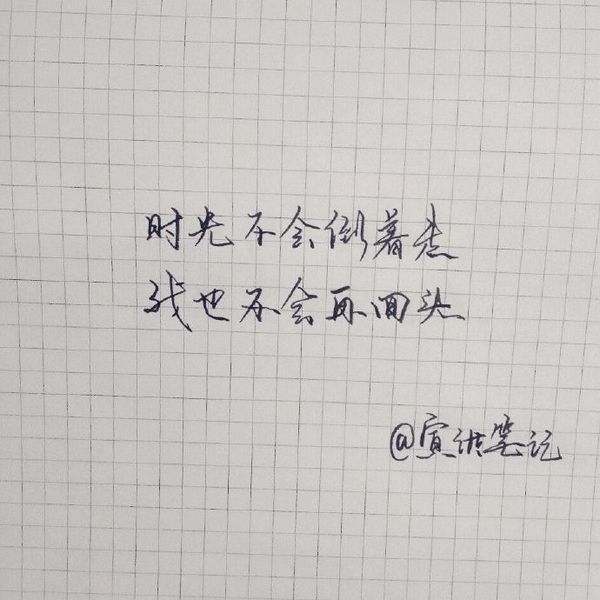 时光不会倒着走
我也不会再回头
@宣洁笔记